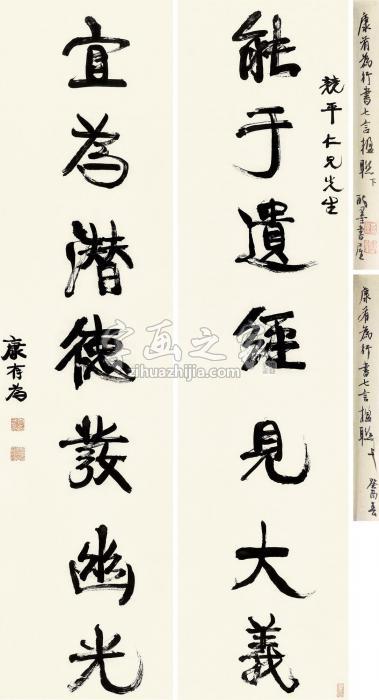 能于遺經見大義
競平仁兄先生
宜為潛德發幽光
康有為
康有為行書七言楹聯 上
康有為行書七言楹聯 下
字画之家
zihuazhijia.com